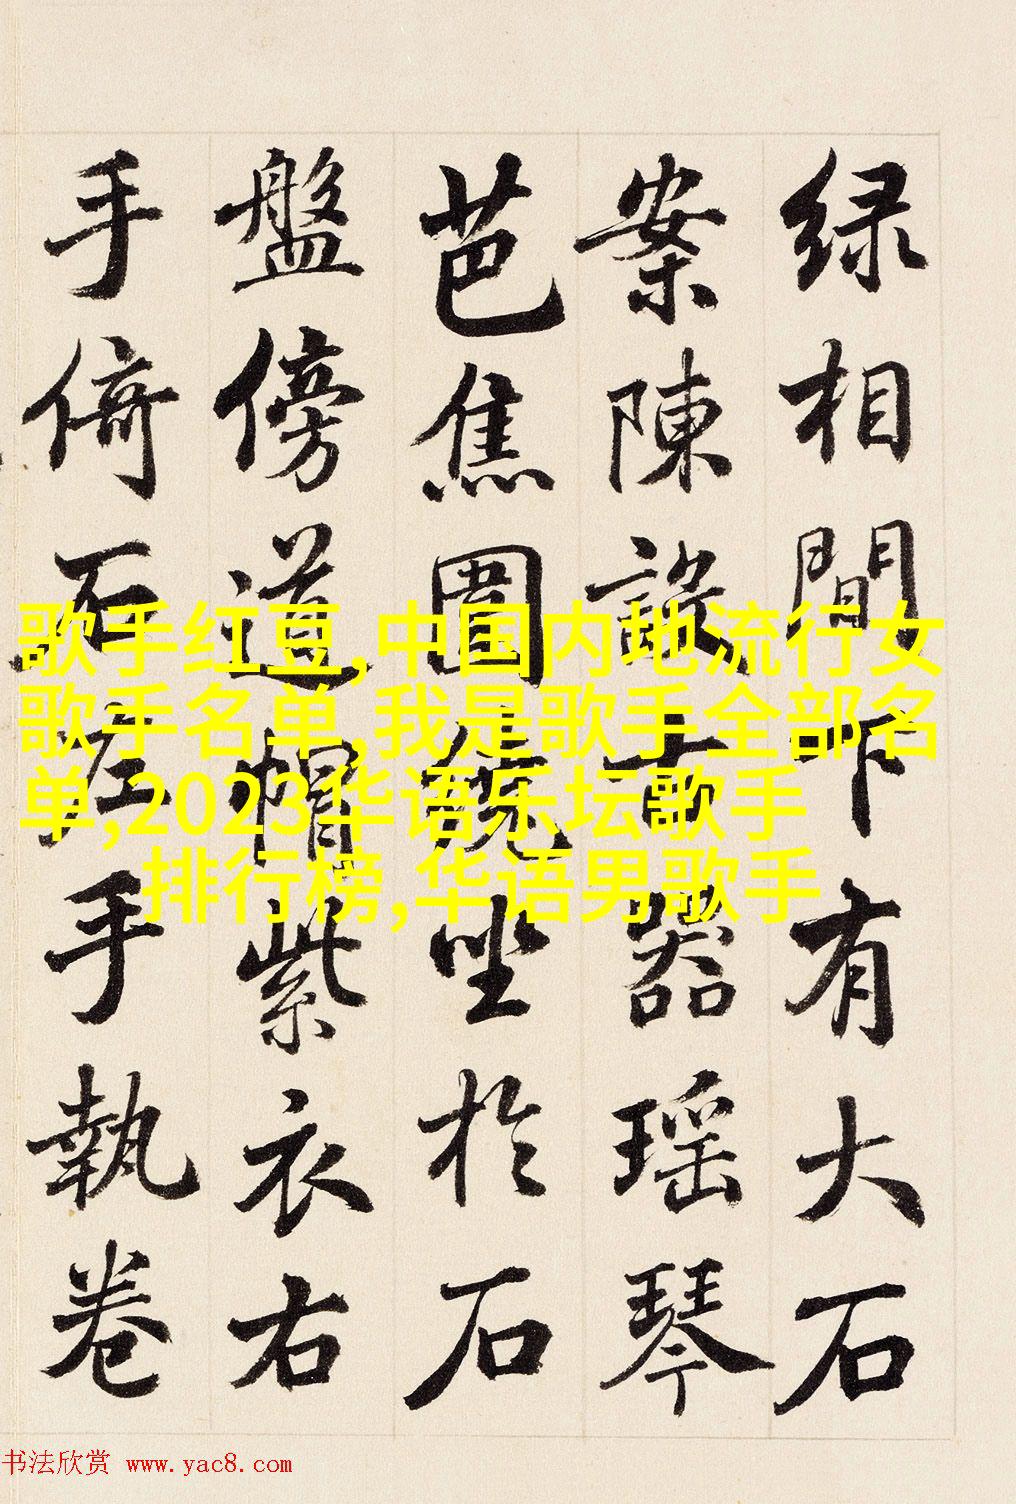 绿相間下有大石
案陳設古器瑶琴
芭焦圍繞坐於石
盤傍道帽紫衣右
手倚石左手執卷
歌手红豆,中国内地流行女
歌手名单,我是歌手全部名
单,2023华语乐坛歌手
排行榜,华语男歌手
书法欣赏 www.yac8.com